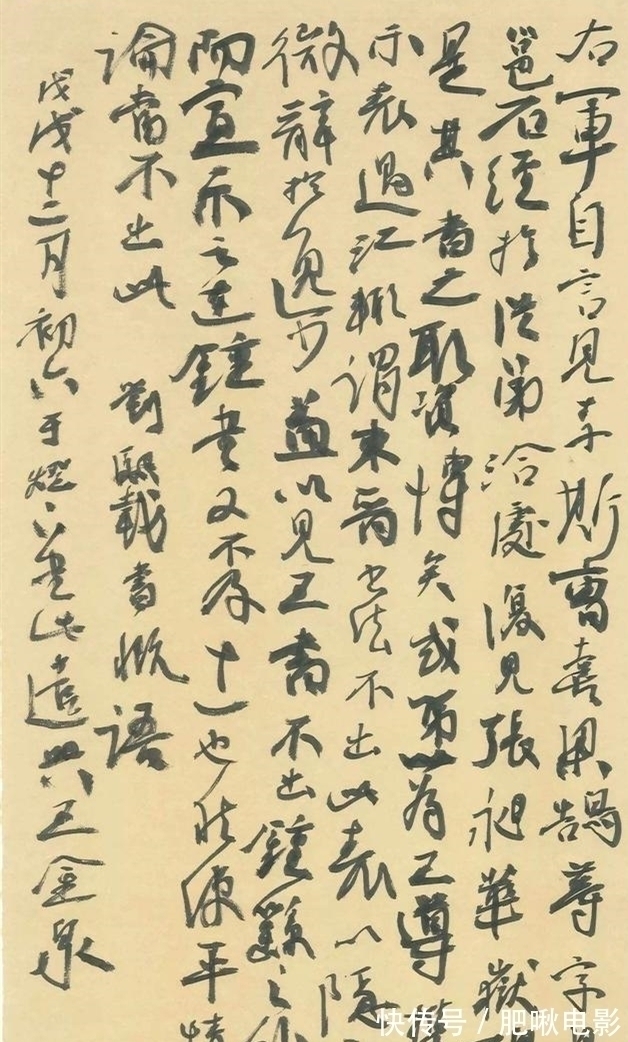 右軍自言見李斯曹喜梁鵠等字
邕石經於洪弟洽處復見張昶華嶽
是其書之取資博矣或第以為王導
示表過江輒謂東晉書法不出此表以隱
微辭於逸少蓋以見王書不出鍾繇之外
而宣示之在鍾書又不及十一也然使平情
論當不出此 劉熙載書概語
戊戌十二月初六于燈下書此遣興王金泉
快传号/肥啾电影